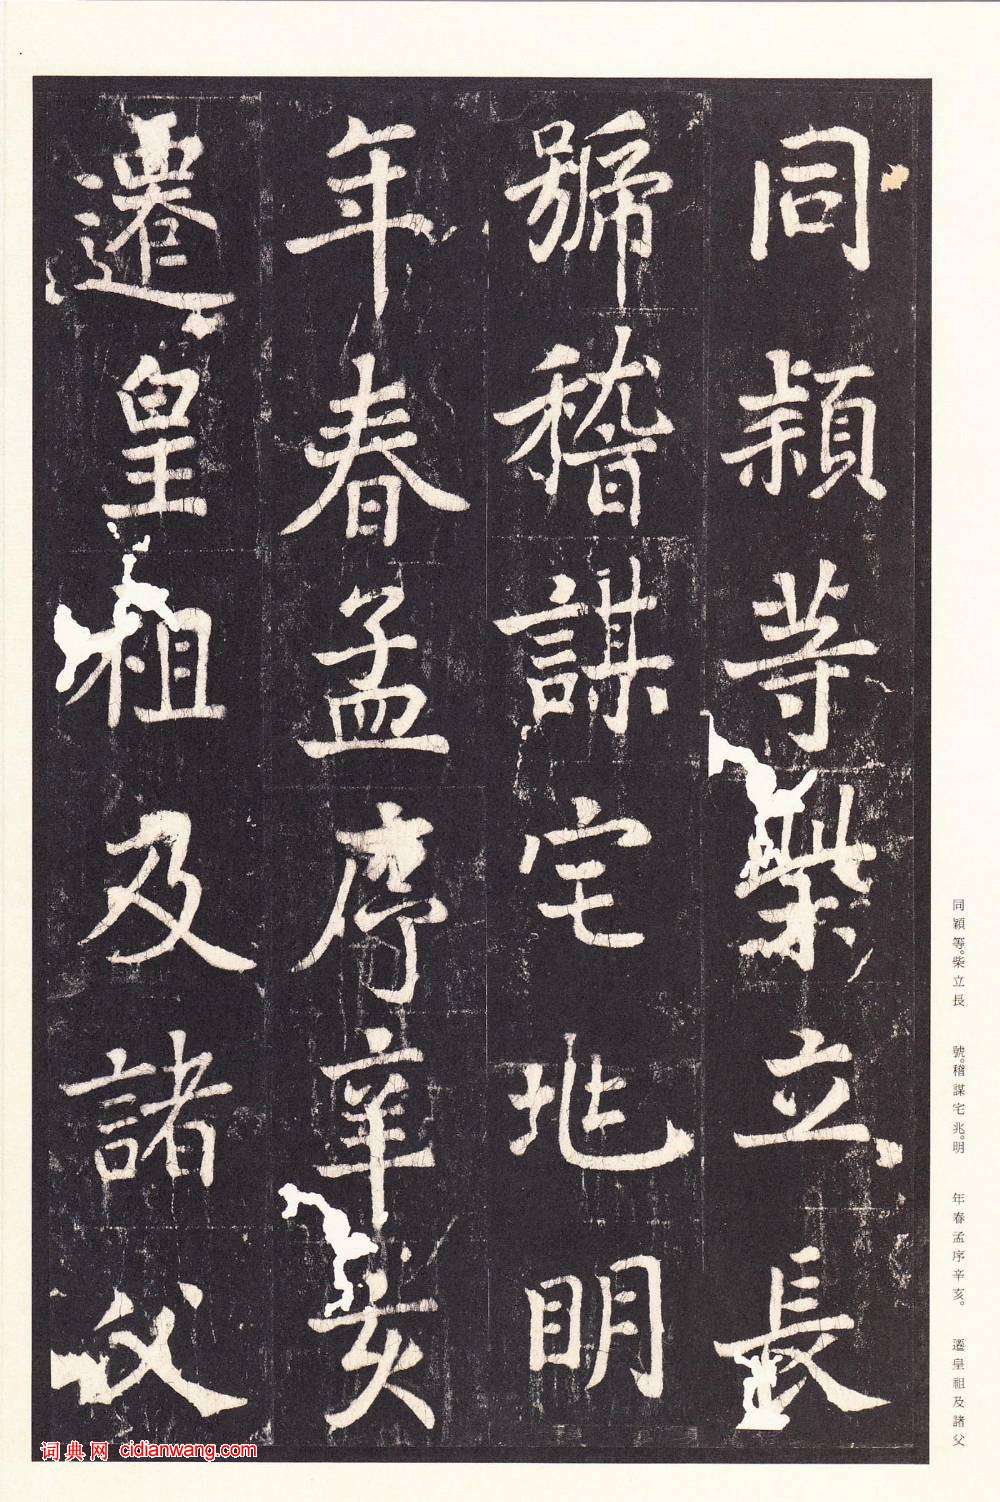 同穎等柴立長
號稽謀宅兆明
年春孟序辛亥
遷皇祖及諸父
同穎等。柴立長　號。稽謀宅兆。明　年春孟序辛亥。　遷皇祖及諸父
词典网 cidianwang.com